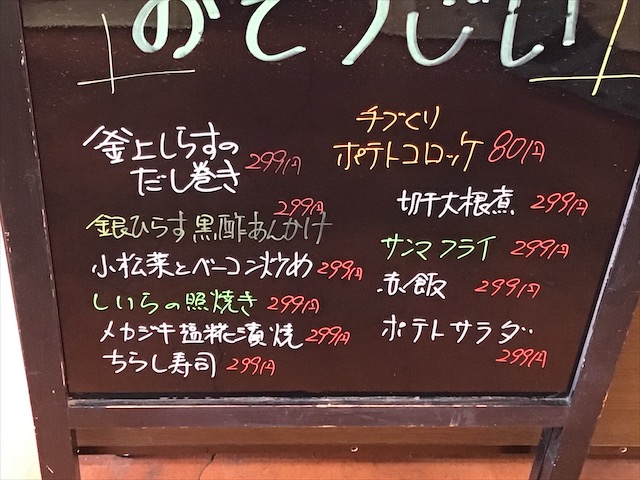 おそうじい
釜上しらすの
だし巻き 299円
299円
銀ひらす黒酢あんかけ
小松菜とベーコン炒め 299円
しいらの照焼き 299円
メカジキ塩糀漬焼 299円
ちらし寿司 299円
手づくり
ポテトコロッケ 80円
切干大根煮 299円
サンマフライ 299円
赤飯 299円
ポテトサラダ
299円